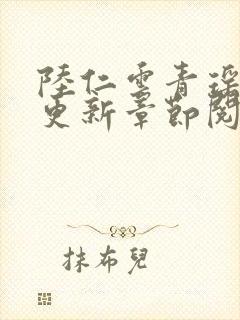 陸仁雲青瑶
更新章節閱
抹布兒